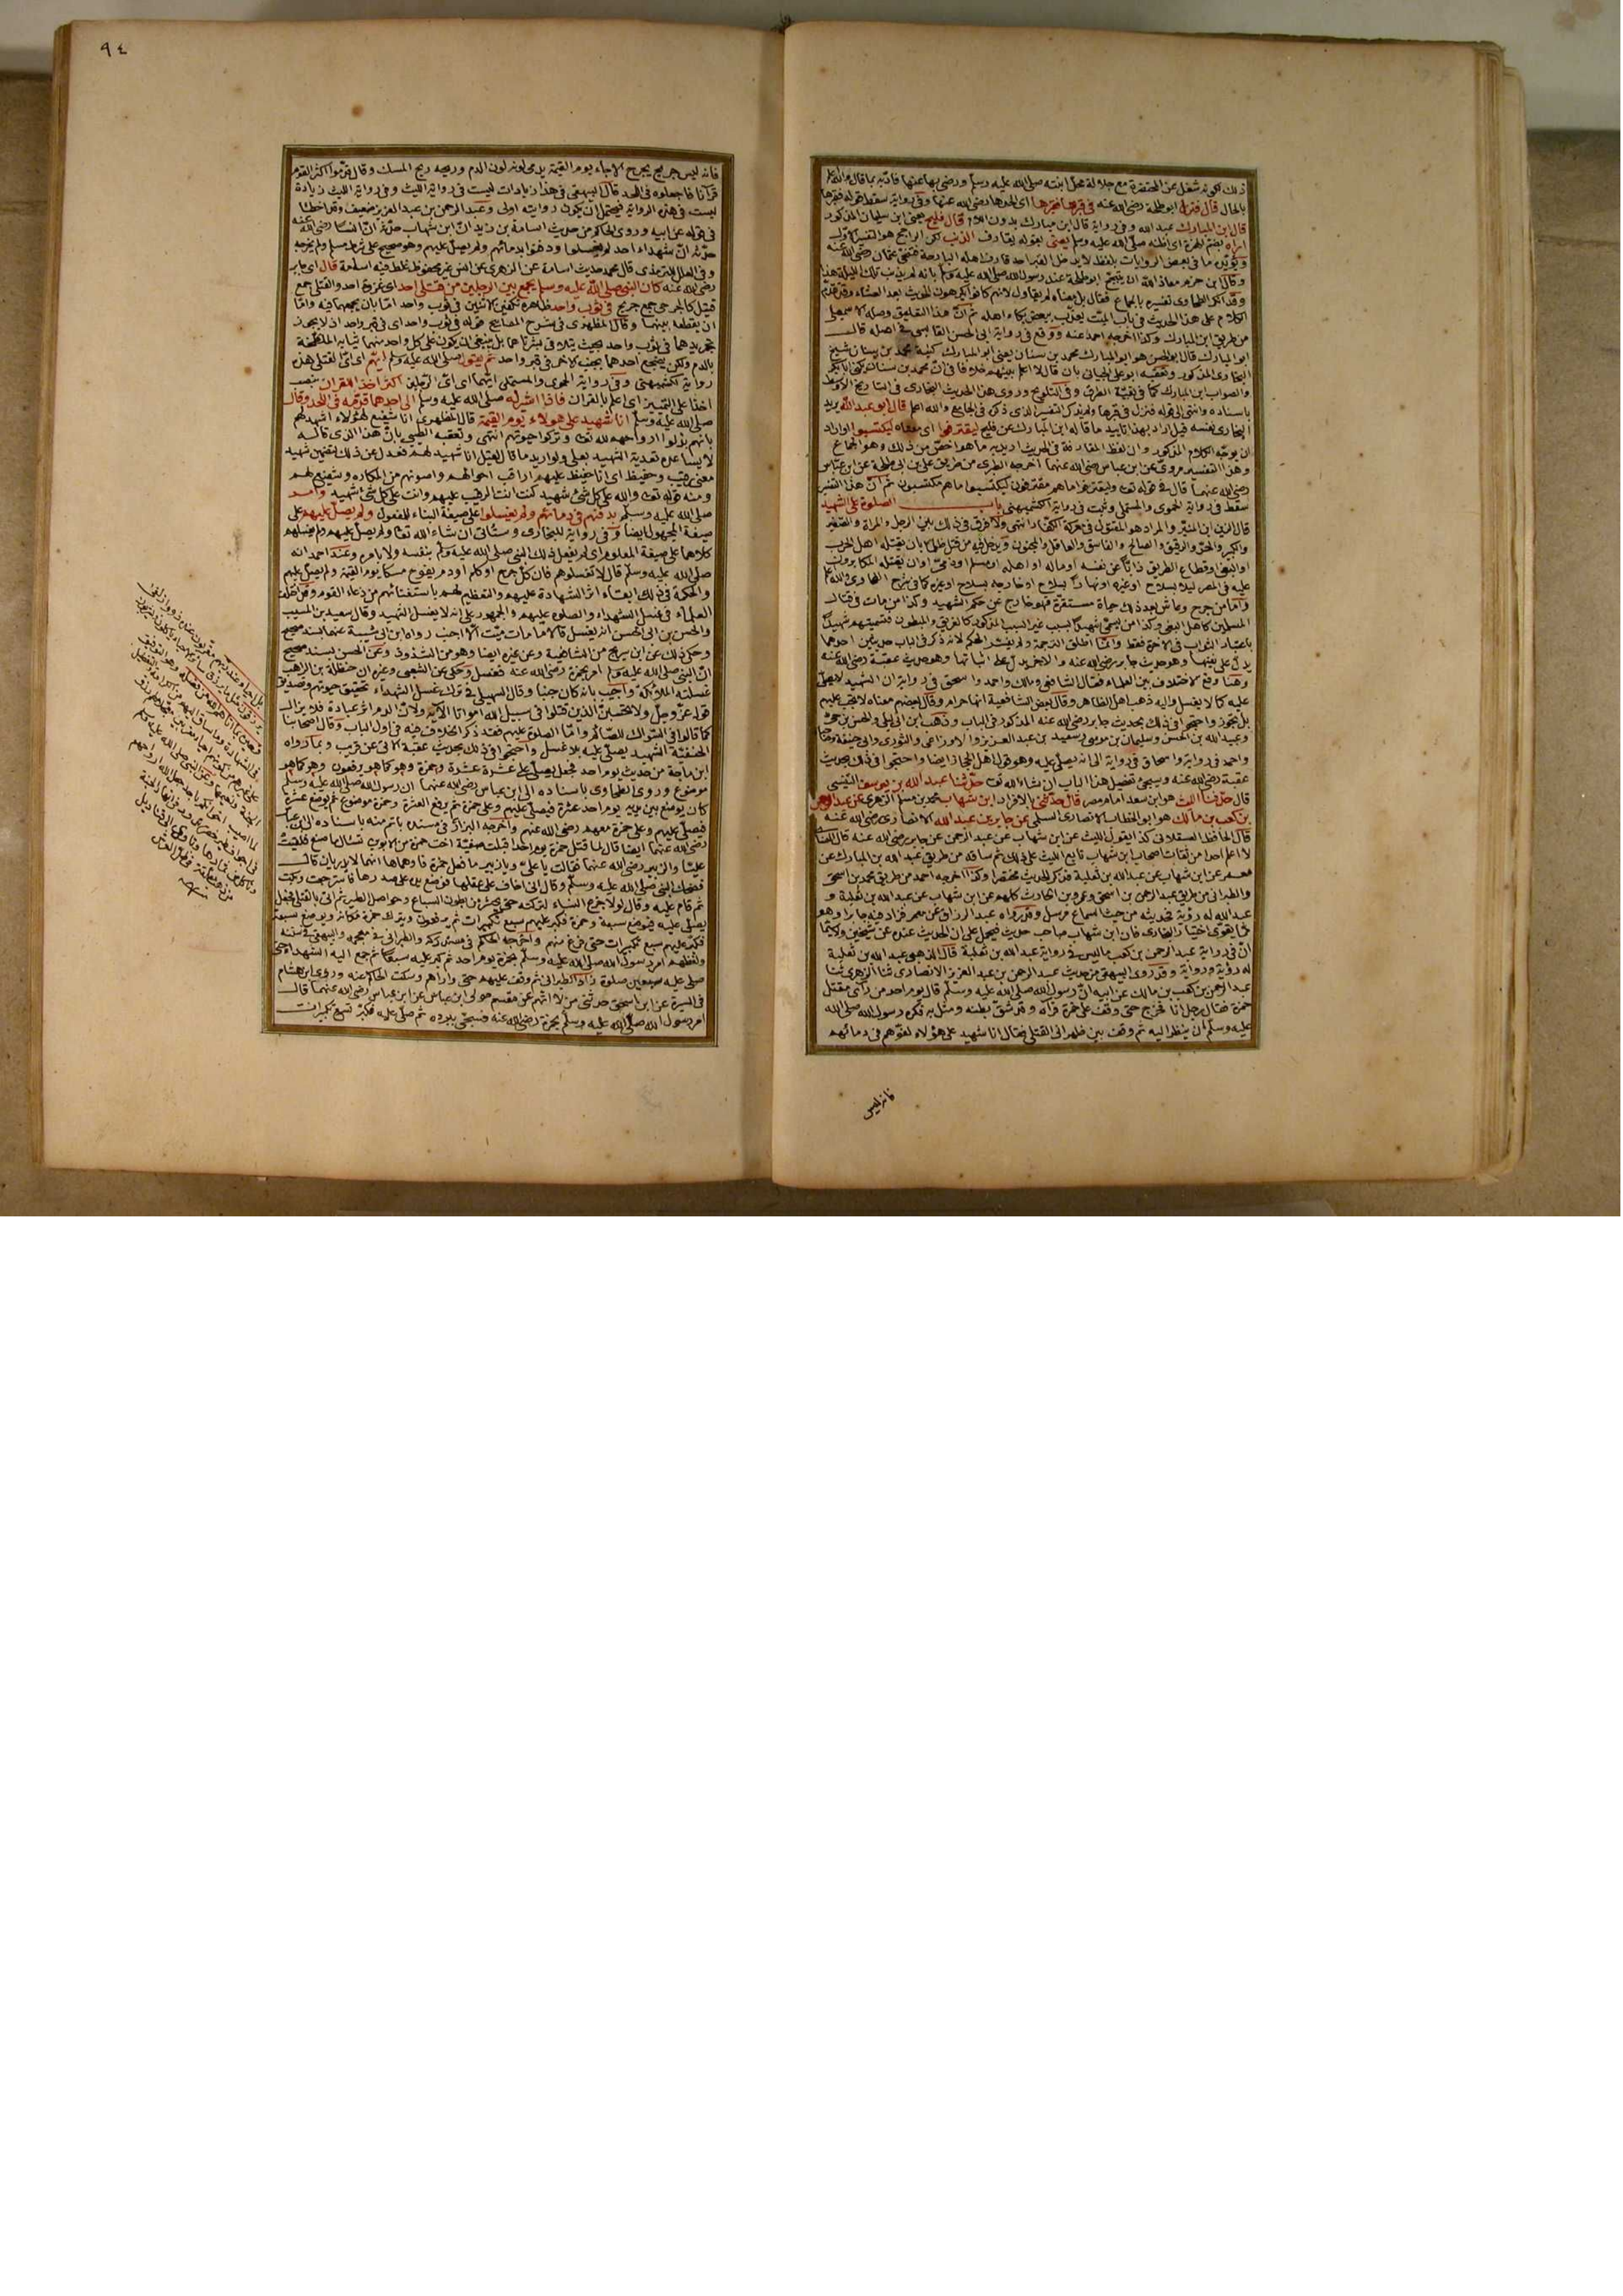 ذلك كونه شغل عن المحتضرة مع جلالة محل ابنته صلى الله عليه وسلم ورضى بها عنها فادبه بما قال والله اعلم
بالحال قال فنزل ابو طلحة رضى الله عنه في قبرها فقبرها اى لحدها رضى الله عنها وفى رواية سقط قوله فقبرها
قال ابن المبارك عبد الله وفى رواية قال ابن مبارك بدون اللام قال فليح يعنى ابن سليمان المذكور
اراه بضم الهمزة اى اظنه صلى الله عليه وسلم يعنى بقوله يقارف الذنب لكن الراجح هو التفسير الاول
ويؤيده ما فى بعض الروايات بلفظ لا يدخل القبر احد قارف اهله البارحة فتنحى عثمان رضى الله عنه
وقال ابن حزم معاذ الله ان يتبجح ابو طلحة عند رسول الله صلى الله عليه وسلم بانه لم يذنب تلك الليلة
الكلام على هذا الحديث فى باب الميت يعذب ببعض بكاء اهله ثم ان هذا التعليق وصله الاسمعيلى
من طريق ابن المبارك وكذا اخرجه احمد عنه ووقع فى رواية ابى الحسن القابسى فى اصله قال
ابو المبارك قال ابو الحسن هو ابو المبارك محمد بن سنان يعنى ابو المبارك كنية محمد بن سنان شيخ
البخارى المذكور وتعقبه ابو على الجيانى بان قال لا اعلم بينهم خلافا فى ان محمد بن سنان يكنى ابا بكر
والصواب ابن المبارك كما فى بقية الطرق وفى التلويح وروى هذا الحديث البخارى فى التاريخ الاوسط
باسناده وانتهى الى قوله فنزل فى قبرها ولم يذكر التفسير الذى ذكره فى الجامع والله اعلم قال ابو عبد الله يريد
البخارى نفسه قيل اراد بهذا تاييد ما قاله ابن المبارك عن فليح ليقترفوا اى معناه ليكتسبوا او اراد
ان يوجه الكلام المذكور وان لفظ المقارفة فى الحديث اريد به ما هو اخص من ذلك وهو الجماع
وهذا التفسير مروى عن ابن عباس رضى الله عنهما اخرجه الطبرى من طريق على بن ابى طلحة عن ابن عباس
رضى الله عنهما قال فى قوله تعالى وليقترفوا ما هم مقترفون ليكتسبوا ما هم مكتسبون ثم ان هذا التفسير
سقط فى رواية الحموى والمستملى وثبت فى رواية الكشميهنى باب الصلوة على الشهيد
قال الزين ابن المنير والمراد هو المقتول فى معركة الكفار انتهى ولا فرق فى ذلك بين الرجل والمرأة والصغير
والكبير والحر والرقيق والصالح والفاسق والعاقل والمجنون ويدخل فيه من قتل ظلما بان يقتله اهل الحرب
او البغى او قطاع الطريق ذابا عن نفسه او ماله او اهله او مسلم او ذمى او ان يقتله المكابرون
عليه فى المصر ليلا بسلاح او غيره او نهارا بسلاح او خارجه بسلاح او غيره كما فى شرح الطحاوى
واما من جرح وعاش بعد ذلك حياة مستقرة فهو خارج عن حكم الشهيد وكذا من مات فى قتال
المسلمين كاهل البغى وكذا من يسمى شهيدا بسبب غير السبب المذكور كالغريق والمبطون فتسميتهم شهيدا
باعتبار الثواب فى الآخرة فقط وانما اطلق الترجمة ولم يفسر الحكم لانه ذكر فى الباب حديثين احدهما
يدل على نفيها وهو حديث جابر رضى الله عنه والآخر يدل على اثباتها وهو حديث عقبة رضى الله عنه
وهنا وقع الاختلاف بين العلماء فقال الشافعى ومالك واحمد واسحق فى رواية ان الشهيد لا يصلى
عليه كما لا يغسل واليه ذهب اهل الظاهر وقال بعض الشافعية انها حرام وقال بعضهم معناه لا تجب عليهم
بل تجوز واحتجوا فى ذلك بحديث جابر رضى الله عنه المذكور فى الباب وذهب ابن ابى ليلى والحسن بن حى
وعبيد الله بن الحسن وسليمان بن موسى وسعيد بن عبد العزيز والاوزاعى والثورى وابى حنيفة
واحمد فى رواية واسحاق فى رواية الى انه يصلى عليه وهو قول اهل الحجاز ايضا واحتجوا فى ذلك بحديث
عقبة رضى الله عنه وسيجئ تفصيل هذا الباب ان شاء الله تعالى حدثنا عبد الله بن يوسف التنيسى
قال حدثنا الليث هو ابن سعد امام مصر قال حدثنى بالافراد ابن شهاب محمد بن مسلم الزهرى عن عبد الرحمن
بن كعب بن مالك هو ابو الخطاب الانصارى السلمى عن جابر بن عبد الله الانصارى رضى الله عنه
قال الحافظ العسقلانى كذا يقول الليث عن ابن شهاب عن عبد الرحمن عن جابر رضى الله عنه قال النسائى
لا اعلم احدا من ثقات اصحاب ابن شهاب تابع الليث على ذلك ثم ساقه من طريق عبد الله بن المبارك عن
معمر عن ابن شهاب عن عبد الله بن ثعلبة فذكر الحديث مختصرا وكذا اخرجه احمد من طريق محمد بن اسحق
والطبرانى من طريق عبد الرحمن بن اسحق وعمرو بن الحارث كلهم عن ابن شهاب عن عبد الله بن ثعلبة و
عبد الله له رؤية فحديثه من حيث السماع مرسل وقد رواه عبد الرزاق عن معمر فزاد فيه جابرا وهو
مما يقوى اختيار البخارى فان ابن شهاب صاحب حديث فيحمل على ان الحديث عنده عن شيخين
ان فى رواية عبد الرحمن بن كعب ما ليس فى رواية عبد الله بن ثعلبة قال الذهبى عبد الله بن ثعلبة
له رؤية ورواية وقد روى البيهقى من حديث عبد الرحمن بن عبد العزيز الانصارى ثنا الزهرى ثنا
عبد الرحمن بن كعب بن مالك عن ابيه ان رسول الله صلى الله عليه وسلم قال يوم احد من رأى مقتل
حمزة فقال رجل انا فخرج حتى وقف على حمزة فرآه وقد شق بطنه ومثل به فكره رسول الله صلى الله
عليه وسلم ان ينظر اليه ثم وقف بين ظهرانى القتلى فقال انا شهيد على هؤلاء لفوهم فى دمائهم
فانه ليس
٩٤
فانه ليس جريح يجرح الا جاء يوم القيمة يدمى لونه لون الدم وريحه ريح المسك وقال قدموا اكثر القوم
قرآنا فاجعلوه فى اللحد قال البيهقى فى هذا زيادات ليست فى رواية الليث وفى رواية الليث زيادة
ليست فى هذه الرواية فيحتمل ان يكون روايته اولى وعبد الرحمن بن عبد العزيز ضعيف وقد اخطأ
فى قوله عن ابيه وروى الحاكم من حديث اسامة بن زيد ان ابن شهاب حدثه ان انسا رضى الله عنه
حدثه ان شهداء احد لم يغسلوا ودفنوا بدمائهم ولم يصل عليهم وهو صحيح على شرط مسلم ولم يخرجه
وفى العلل للترمذى قال محمد حديث اسامة عن الزهرى عن انس غير محفوظ غلط فيه اسامة قال اى جابر
رضى الله عنه كان النبى صلى الله عليه وسلم يجمع بين الرجلين من قتلى احد اى غزوة احد والقتلى جمع
قتيل كالجرحى جمع جريح فى ثوب واحد ظاهره تكفين الاثنين فى ثوب واحد اما بان يجمعهما فيه واما
ان يقطعه بينهما وقال المظهرى فى شرح المصابيح قوله فى ثوب واحد اى فى قبر واحد اذ لا يجوز
تجريدهما فى ثوب واحد بحيث يتلاقى بشرتاهما بل ينبغى ان يكون على كل واحد منهما ثيابه الملطخة
بالدم ولكن يضجع احدهما بجنب الآخر فى قبر واحد ثم يقول صلى الله عليه وسلم ايهم اى اى القتلى هذه
رواية الكشميهنى وفى رواية الحموى والمستملى ايهما اى اى الرجلين اكثر اخذا للقرآن بنصب
اخذا على التمييز اى اعلم بالقرآن فاذا اشير له صلى الله عليه وسلم الى احدهما قدمه فى اللحد وقال
صلى الله عليه وسلم انا شهيد على هؤلاء يوم القيمة قال المظهرى انا شفيع لهؤلاء اشهد لهم
بانهم بذلوا ارواحهم لله تعالى وتركوا حيوتهم انتهى وتعقبه الطيبى بان هذا الذى قاله
لا يساعده تعدية الشهيد بعلى ولو اريد ما قال لقيل انا شهيد لهم فعدل عن ذلك لتضمين شهيد
معنى رقيب وحفيظ اى انا حفيظ عليهم اراقب احوالهم واصونهم من المكاره وشفيع لهم
ومنه قوله تعالى والله على كل شئ شهيد كنت انت الرقيب عليهم وانت على كل شئ شهيد وامر
صلى الله عليه وسلم بدفنهم فى دمائهم ولم يغسلوا على صيغة البناء للمفعول ولم يصل عليهم على
صيغة المجهول ايضا وفى رواية للبخارى وستأتى ان شاء الله تعالى ولم يصل عليهم ولم يغسلهم
كلاهما على صيغة المعلوم اى لم يفعل ذلك النبى صلى الله عليه وسلم بنفسه ولا بامره وعند احمد انه
صلى الله عليه وسلم قال لا تغسلوهم فان كل جرح او كلم او دم يفوح مسكا يوم القيمة ولم يصل عليهم
والحكمة فى ذلك ابقاء اثر الشهادة عليهم والتعظيم لهم باستغنائهم عن دعاء القوم وقد اختلف
العلماء فى غسل الشهداء والصلوة عليهم والجمهور على انه لا يغسل الشهيد وقال سعيد بن المسيب
والحسن بن ابى الحسن انه يغسل قالا ما مات ميت الا اجنب رواه ابن ابى شيبة عنهما بسند صحيح
وحكى ذلك عن ابن سريج من الشافعية وعن غيره ايضا وهو من الشذوذ وعن الحسن بسند صحيح
ان النبى صلى الله عليه وسلم امر بحمزة رضى الله عنه فغسل وحكى عن الشعبى وغيره ان حنظلة بن الراهب
غسلته الملائكة واجيب بانه كان جنبا وقال السهيلى فى ترك غسل الشهداء تحقيق حيوتهم وتصديق
قوله عز وجل ولا تحسبن الذين قتلوا فى سبيل الله امواتا الآية ولان الدم اثر عبادة فلا يزال
كما قالوا فى السواك للصائم واما الصلوة عليهم فقد ذكر الخلاف فيه فى اول الباب وقال اصحابنا
الحنفية الشهيد يصلى عليه بلا غسل واحتجوا فى ذلك بحديث عقبة الآتى عن قريب وبما رواه
ابن ماجة من حديث يوم احد فجعل يصلى على عشرة عشرة وحمزة وهو كما هو يرفعون وهو كما هو
موضوع وروى الطحاوى باسناده الى ابن عباس رضى الله عنهما ان رسول الله صلى الله عليه وسلم
كان يوضع بين يديه يوم احد عشرة فيصلى عليهم وعلى حمزة ثم يرفع العشرة وحمزة موضوع ثم يوضع عشرة
فيصلى عليهم وعلى حمزة معهم رضى الله عنهم واخرجه البزار فى مسنده باتم منه باسناده الى ابن عباس
رضى الله عنهما ايضا قال لما قتل حمزة يوم احد اقبلت صفية اخت حمزة من الابوين تسأل ما صنع فلقيت
عليا والزبير رضى الله عنهما فقالت يا على ويا زبير ما فعل حمزة فاوهماها انهما لا يدريان قال
فضحك النبى صلى الله عليه وسلم وقال انى اخاف على عقلها فوضع يده على صدرها فاسترجعت وبكت
ثم قام عليه وقال لولا جزع النساء لتركته حتى يحشر من بطون السباع وحواصل الطير ثم اتى بالقتلى فجعل
يصلى عليه فيوضع سبعة وحمزة فكبر عليهم سبع تكبيرات ثم يرفعون ويترك حمزة مكانه ويوضع سبعة
فكبر عليهم سبع تكبيرات حتى فرغ منهم واخرجه الحاكم فى مستدركه والطبرانى فى معجمه والبيهقى فى سننه
ولفظهم امر رسول الله صلى الله عليه وسلم بحمزة يوم احد ثم كبر عليه سبعا ثم جمع اليه الشهداء حتى
صلى عليه سبعين صلوة زاد الطبرانى ثم وقف عليهم حتى واراهم وسكت الحاكم عنه وروى ابن هشام
فى السيرة عن ابن اسحق حدثنى من لا اتهم عن مقسم مولى ابن عباس عن ابن عباس رضى الله عنهما قال
امر رسول الله صلى الله عليه وسلم بحمزة رضى الله عنه فسجى ببرده ثم صلى عليه فكبر تسع تكبيرات